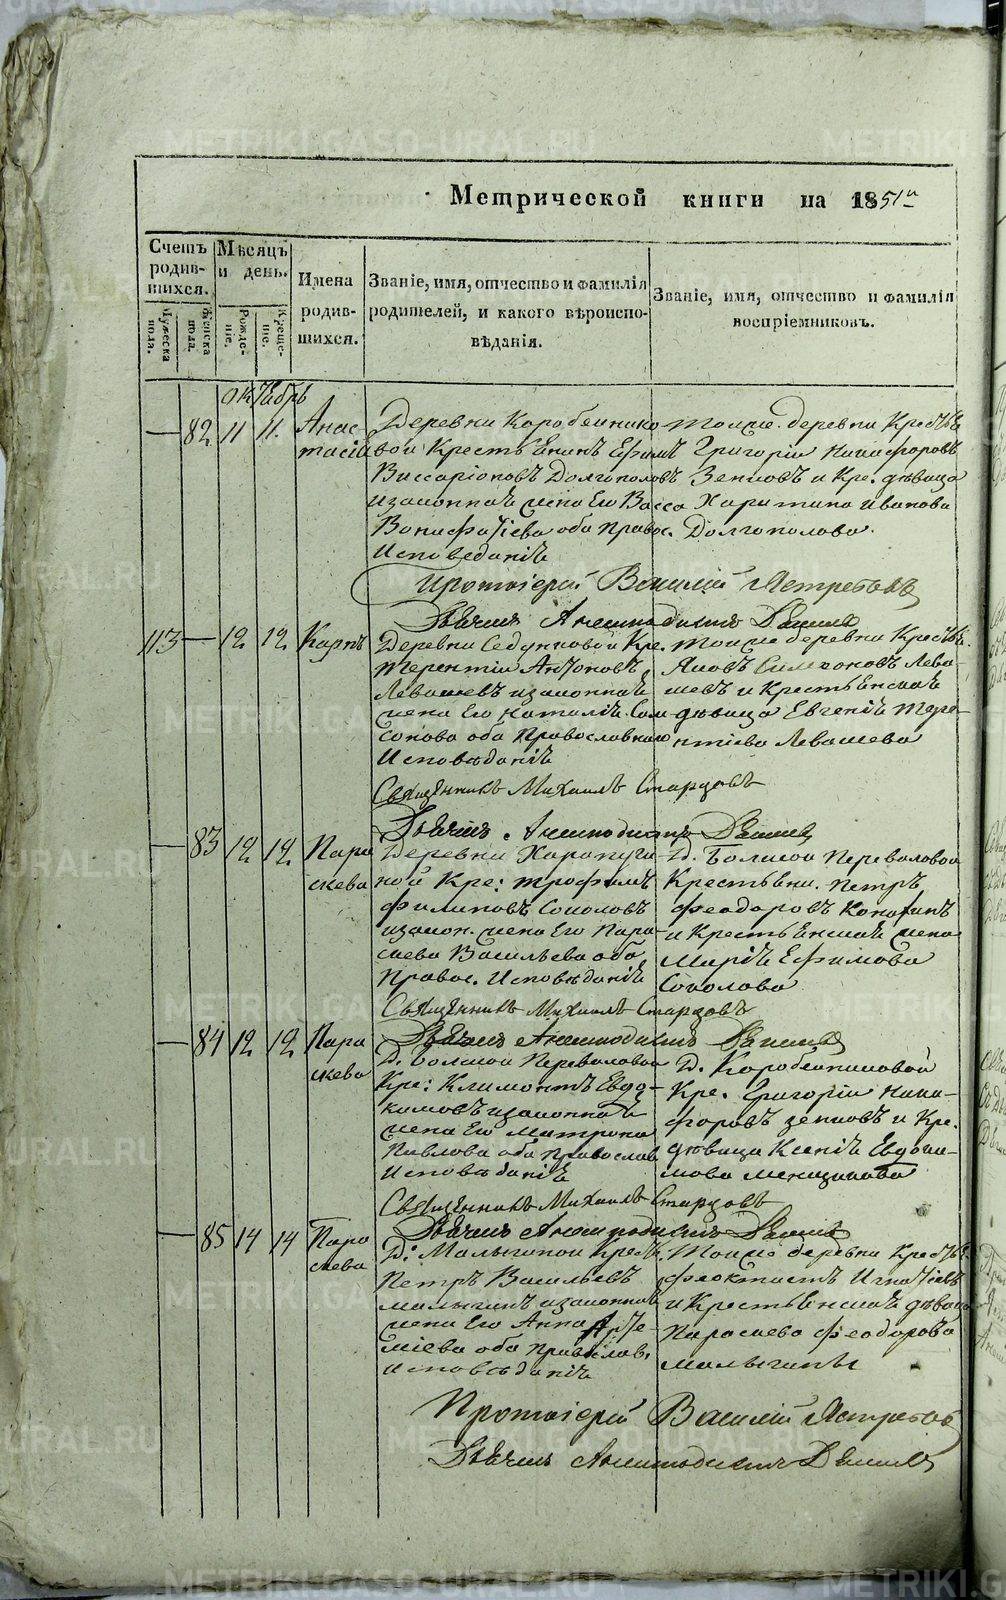 Метрической книги на 1851й
Счетъ родив-шихся.
Мѣсяцъ и день.
Мужеска пола.
Женска пола.
Рожде-ніе.
Креще-ніе.
Имена
родив-
шихся.
Званіе, имя, отчество и фамилія
родителей, и какого вѣроиспо-
вѣданія.
Званіе, имя, отчество и фамилія
воспріемниковъ.
октябрь
— 82 11 11. Анас-
тасія
Деревни Коробейнико-
вой Крестьянинъ Ефимъ
Виссаріоновъ Долгополовъ
и законная жена Его Васса
Вонифатіева оба Правос.
Исповеданія
Тойже деревни Крестья.
Григорій Никифоровъ
Зенковъ и Кре. дѣвица
Харитина Иванова
Долгополова.
Протоіерей Василій Ястребовъ
Дьячекъ
113 — 12 12 Карпъ
Деревни Седунковой Кре.
Терентій Антоновъ
Левашевъ и законная
жена Его Наталія Сам-
сонова оба Православнаго
Исповѣданія
Тойже деревни Крестья.
Яковъ Симеоновъ Лева-
шевъ и Крестьянская
дѣвица Евгенія Тере-
нтіева Левашева
Священникъ Михаилъ Старцовъ
Дьячекъ
— 83 12 12 Пара
скева
Деревни
ной Кре: Трофимъ
Филиповъ Соколовъ
и закон. жена Его Пара-
скева Васильева оба
Правос. Исповѣданія
Д. Большой Переваловой
Крестьянинъ Петръ
Феодоровъ
и Крестьянская жена
Марія Ефимова
Соколова
Священникъ Михаилъ Старцовъ
Дьячекъ
— 84 12 12 Пара
скева
Д. Большой Переваловой
Кре: Климонтъ Евдо-
кимовъ и законная
жена Его Матрона
Павлова оба Православ
Исповѣданія
Д. Коробейниковой
Кре. Григорій Ники-
форовъ Зенковъ и Кре.
дѣвица Ксенія Евдоки-
мова
Священникъ Михаилъ Старцовъ
Дьячекъ
— 85 14 14 Пара
скева
Д: Малыгиной Крест.
Петръ Васильевъ
Малыгинъ и законная
жена Его Анна Арте-
міева оба Православ.
Исповѣданія
Тойже деревни Крестья.
Феоктистъ Игнатіевъ
и Крестьянская дѣвица
Параскева Феодорова
Малыгины
Протоіерей Василій Ястребовъ
Дьячекъ
METRIKI.GASO-URAL.RU